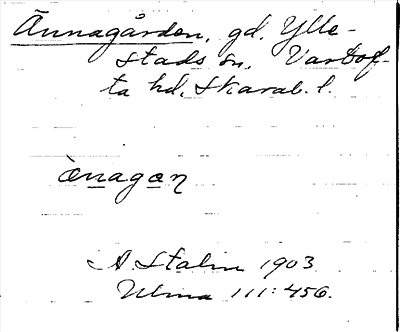 Ännagården, gd, Ylle-
stads sn, Vartof-
ta hd, Skarab. l.
ènagan
A. Stalin 1903
Ulma 111:456.